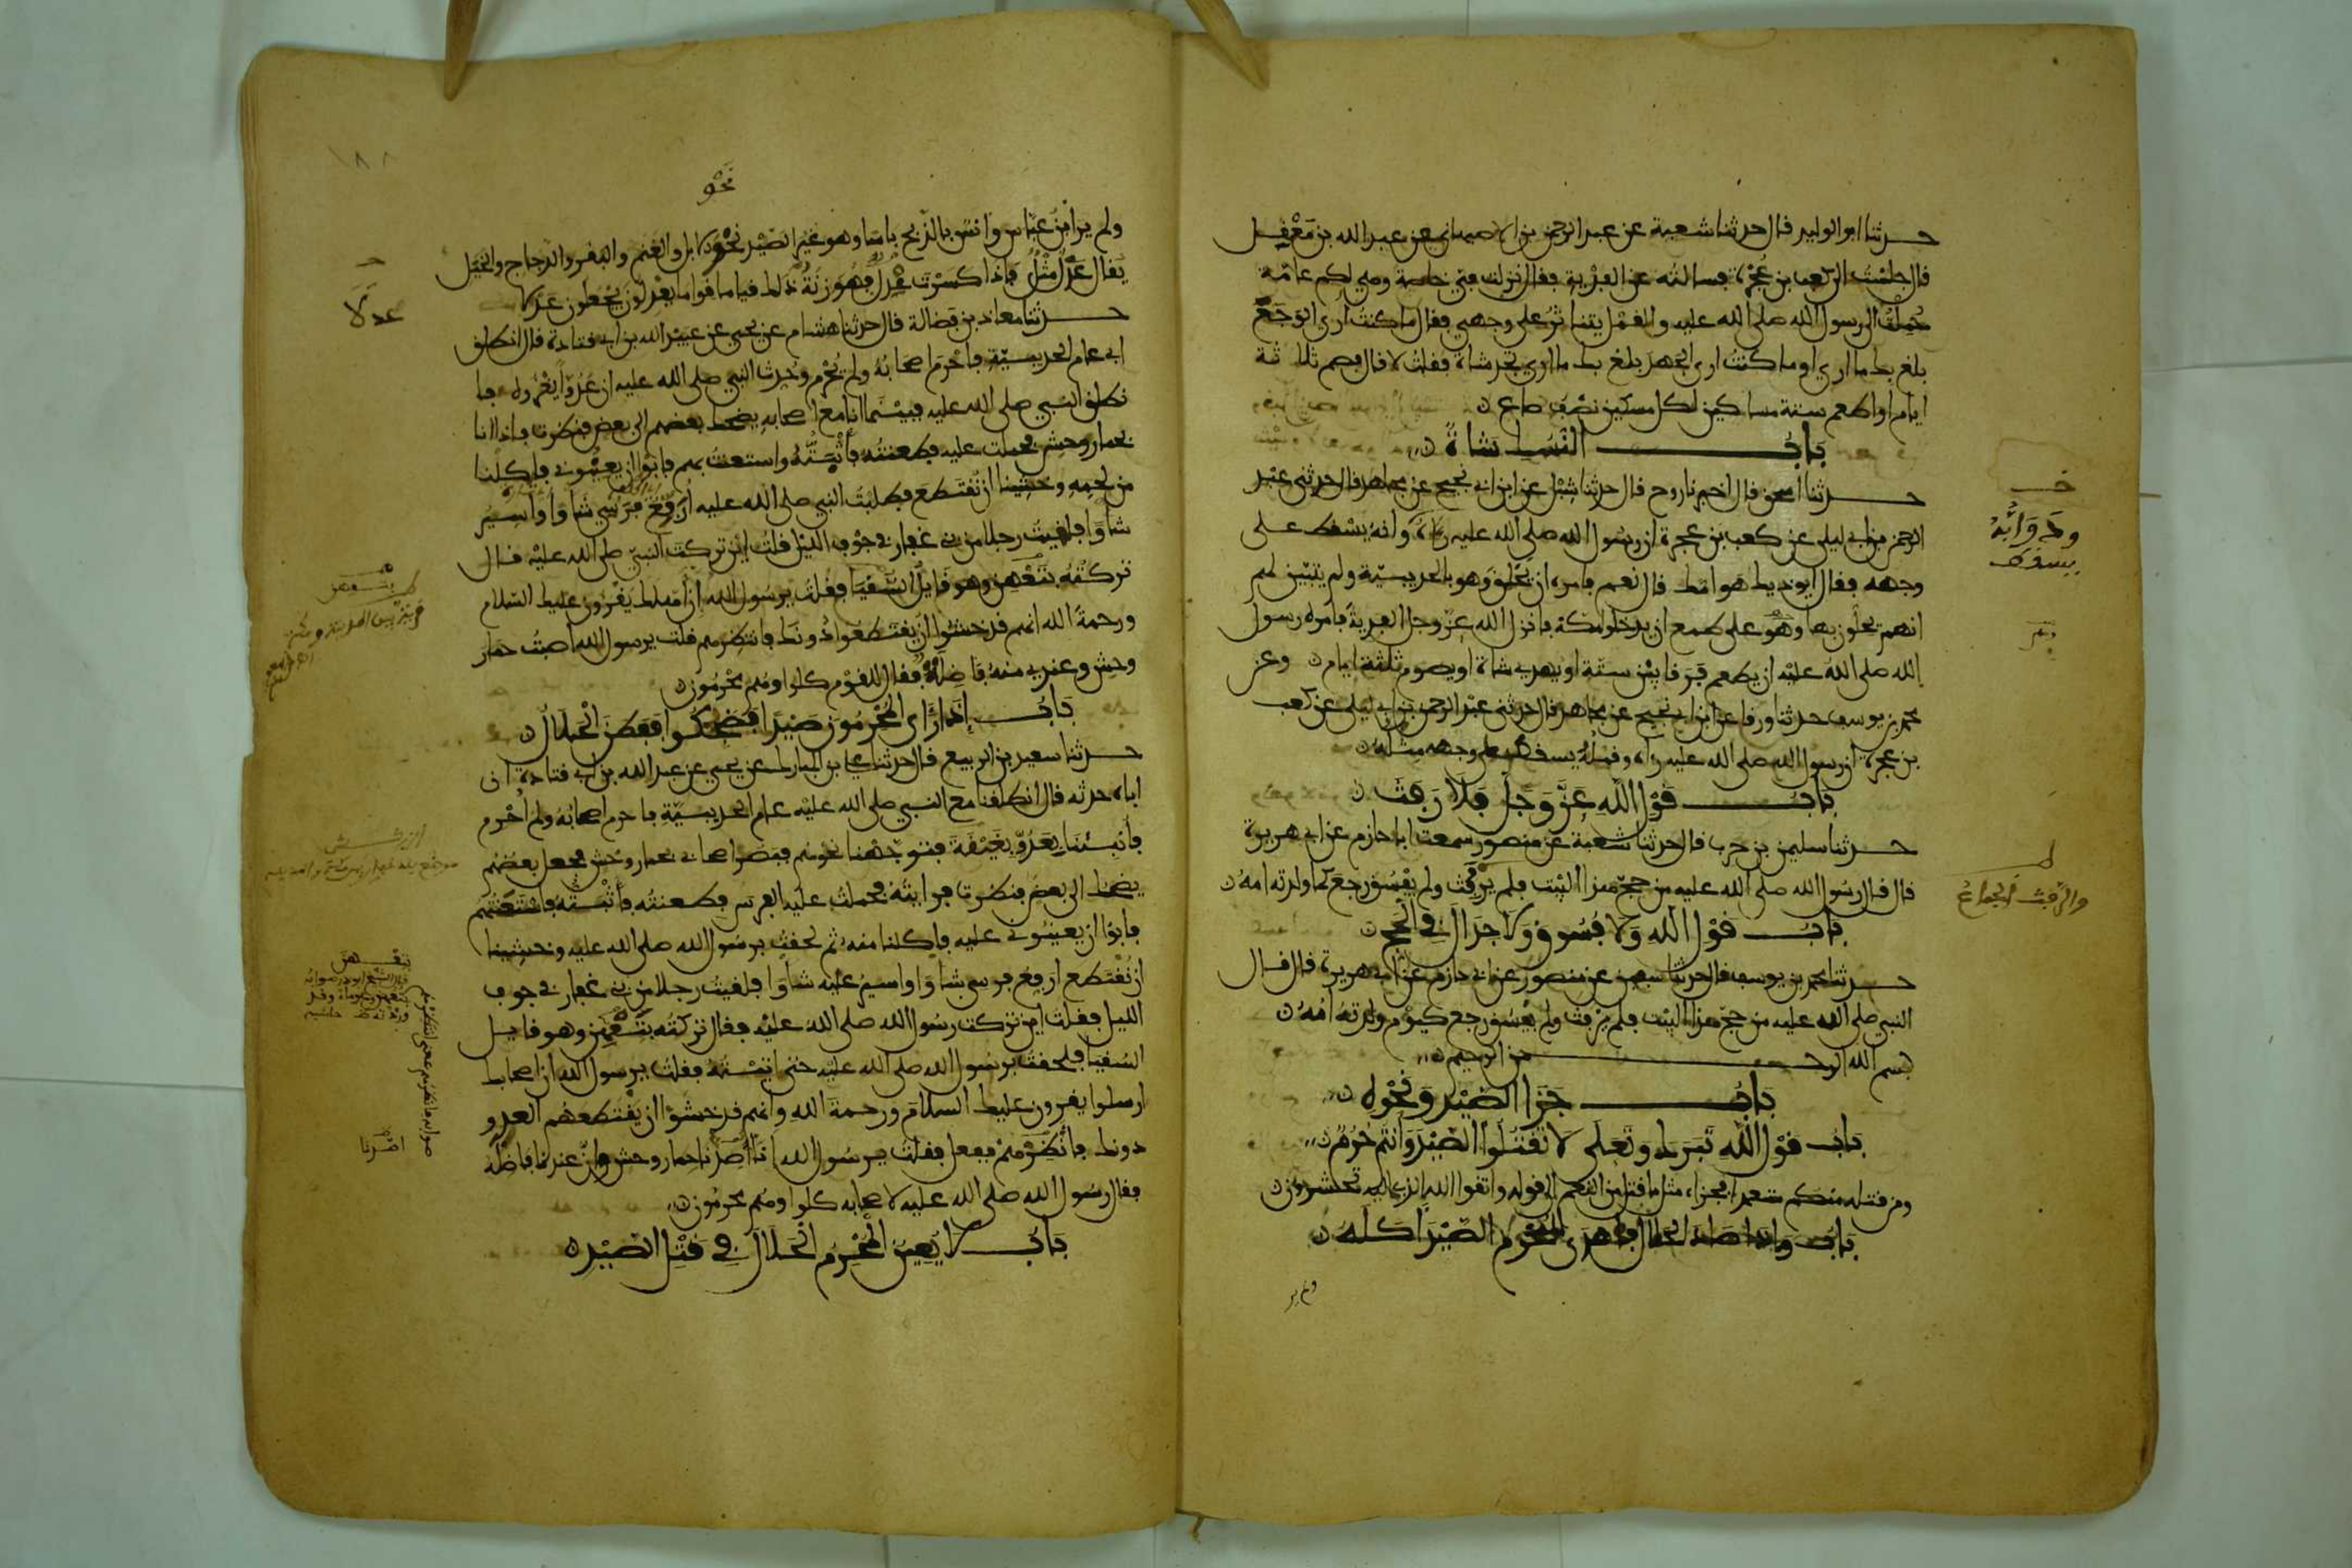 حدثنا ابو الوليد قال حدثنا شعبة عن عبد الرحمن بن الاصبهاني عن عبد الله بن معقل
قال جلست الى كعب بن عجرة فسالته عن الفدية فقال نزلت في خاصة وهي لكم عامة
حملت الى رسول الله صلى الله عليه والقمل يتناثر على وجهي فقال ما كنت ارى الوجع
بلغ بك ما ارى او ما كنت ارى الجهد بلغ بك ما ارى تجد شاة فقلت لا قال فصم ثلاثة
ايام او اطعم ستة مساكين لكل مسكين نصف صاع
باب النسك شاة
حدثنا اسحق قال اخبرنا روح قال حدثنا شبل عن ابن ابي نجيح عن مجاهد قال حدثني عبد
الرحمن بن ابي ليلى عن كعب بن عجرة ان رسول الله صلى الله عليه رءاه وانه يسقط على
وجهه فقال ايوذيك هوامك قال نعم فامره ان يحلق وهو بالحديبية ولم يتبين لهم
انهم يحلون بها وهم على طمع ان يدخلوا مكة فانزل الله عز وجل الفدية فامره رسول
الله صلى الله عليه ان يطعم فرقا بين ستة او يهدي شاة او يصوم ثلثة ايام وعن
محمد بن يوسف حدثنا ورقا عن ابن ابي نجيح عن مجاهد قال حدثني عبد الرحمن بن ابي ليلى عن كعب
بن عجرة ان رسول الله صلى الله عليه رءاه وقمله يسقط على وجهه مثله
باب قول الله عز وجل فلا رفث
حدثنا سليمن بن حرب قال حدثنا شعبة عن منصور سمعت ابا حازم عن ابي هريرة
قال قال رسول الله صلى الله عليه من حج هذا البيت فلم يرفث ولم يفسق رجع كما ولدته امه
باب قول الله ولا فسوق ولا جدال في الحج
حدثنا محمد بن يوسف قال حدثنا سفين عن منصور عن ابي حازم عن ابي هريرة قال قال
النبي صلى الله عليه من حج هذا البيت فلم يرفث ولم يفسق رجع كيوم ولدته امه
بسم الله الرحمن الرحيم
باب جزا الصيد ونحوه
باب قول الله تبرك وتعلى لا تقتلوا الصيد وانتم حرم
ومن قتله منكم متعمدا فجزاء مثل ما قتل من النعم الى قوله واتقوا الله الذي اليه تحشرون
باب واذا صاد الحلال فاهدى للمحرم الصيد اكله
ولم ير
خ
ودوابه
يسقط
والرفث الجماع
نحو
ولم ير ابن عباس وانس بالذبح باسا وهو غير الصيد نحو الابل والغنم والبقر والدجاج والخيل
يقال عدل مثل فاذا كسرت عدل فهو زنة ذلك قياما قواما يعدلون يجعلون عدلا
حدثنا معاذ بن فضالة قال حدثنا هشام عن يحيى عن عبد الله بن ابي قتادة قال انطلق
ابي عام الحديبية فاحرم اصحابه ولم يحرم وحدث النبي صلى الله عليه ان عدوا يغزوه فا
نطلق النبي صلى الله عليه فبينما انا مع اصحابه يضحك بعضهم الى بعض فنظرت فاذا انا
بحمار وحش فحملت عليه فطعنته فاثبته واستعنت بهم فابوا ان يعينوني فاكلنا
من لحمه وخشينا ان نقتطع فطلبت النبي صلى الله عليه ارفع فرسي شاوا واسير
شاوا فلقيت رجلا من بني غفار في جوف الليل قلت اين تركت النبي صلى الله عليه قال
تركته بتعهن وهو قايل السقيا فقلت يرسول الله ان اهلك يقرون عليك السلام
ورحمة الله انهم قد خشوا ان يقتطعوا دونك فانتظرهم قلت يرسول الله اصبت حمار
وحش وعندي منه فاضلة فقال للقوم كلوا وهم محرمون
باب اذا راى المحرمون صيدا فضحكوا ففطن الحلال
حدثنا سعيد بن الربيع قال حدثنا علي بن المبارك عن يحيى عن عبد الله بن ابي قتادة ان
اباه حدثه قال انطلقنا مع النبي صلى الله عليه عام الحديبية فاحرم اصحابه ولم احرم
فانبئنا بعدو بغيقة فتوجهنا نحوهم فبصر اصحابي بحمار وحش فجعل بعضهم
يضحك الى بعض فنظرت فرايته فحملت عليه الفرس فطعنته فاثبته فاستعنتهم
فابوا ان يعينوني عليه فاكلنا منه ثم لحقت برسول الله صلى الله عليه وخشينا
ان نقتطع ارفع فرسي شاوا واسير عليه شاوا فلقيت رجلا من بني غفار في جوف
الليل فقلت اين تركت رسول الله صلى الله عليه فقال تركته بتعهن وهو قايل
السقيا فلحقت برسول الله صلى الله عليه حتى اتيته فقلت يرسول الله ان اصحابك
ارسلوا يقرون عليك السلام ورحمة الله وانهم قد خشوا ان يقتطعهم العدو
دونك فانظرهم ففعل فقلت يرسول الله انا اصدنا حمار وحش وان عندنا فاضلة
فقال رسول الله صلى الله عليه لاصحابه كلوا وهم محرمون
باب لا يعين المحرم الحلال في قتل الصيد
١٨٨
عدلا
بتعهن